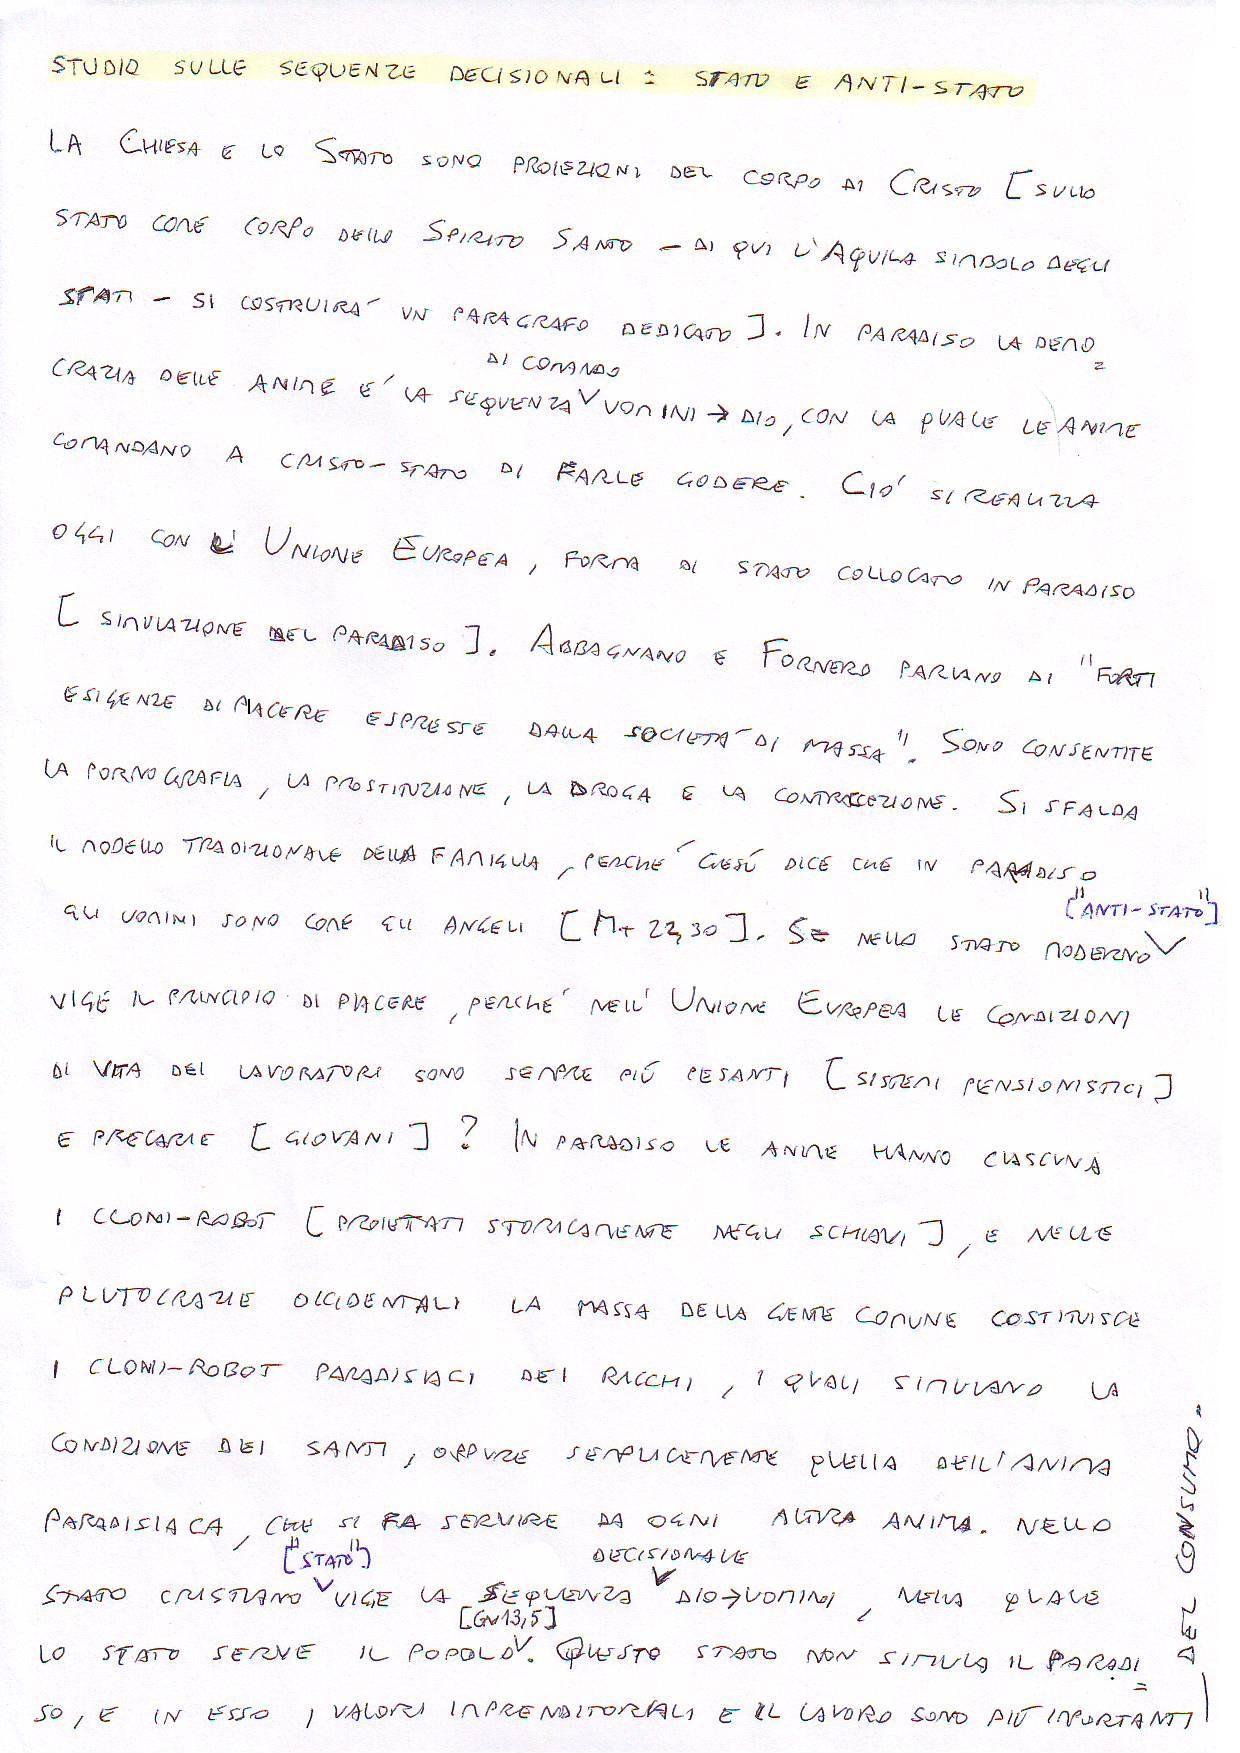 STUDIO SULLE SEQUENZE DECISIONALI: STATO E ANTI-STATO
LA CHIESA E LO STATO SONO PROIEZIONI DEL CORPO DI CRISTO [SULLO
STATO COME CORPO DELLO SPIRITO SANTO – DI QUI L'AQUILA SIMBOLO DEGLI
STATI – SI COSTRUIRA' UN PARAGRAFO DEDICATO]. IN PARADISO LA DEMO=
DI COMANDO
CRAZIA DELLE ANIME E' LA SEQUENZA ∨ UOMINI → DIO, CON LA QUALE LE ANIME
COMANDANO A CRISTO-STATO DI FARLE GODERE. CIO' SI REALIZZA
OGGI CON L'UNIONE EUROPEA, FORMA DI STATO COLLOCATO IN PARADISO
[SIMULAZIONE DEL PARADISO]. ABBAGNANO E FORNERO PARLANO DI "FORTI
ESIGENZE DI PIACERE ESPRESSE DALLA SOCIETA' DI MASSA". SONO CONSENTITE
LA PORNOGRAFIA, LA PROSTITUZIONE, LA DROGA E LA CONTRACCEZIONE. SI SFALDA
IL MODELLO TRADIZIONALE DELLA FAMIGLIA, PERCHE' GESÚ DICE CHE IN PARADISO
["ANTI-STATO"]
GLI UOMINI SONO COME GLI ANGELI [Mt 22,30]. SE NELLO STATO MODERNO ∨
VIGE IL PRINCIPIO DI PIACERE, PERCHE' NELL'UNIONE EUROPEA LE CONDIZIONI
DI VITA DEI LAVORATORI SONO SEMPRE PIÚ PESANTI [SISTEMI PENSIONISTICI]
E PRECARIE [GIOVANI]? IN PARADISO LE ANIME HANNO CIASCUNA
I CLONI-ROBOT [PROIETTATI STORICAMENTE NEGLI SCHIAVI], E NELLE
PLUTOCRAZIE OCCIDENTALI LA MASSA DELLA GENTE COMUNE COSTITUISCE
I CLONI-ROBOT PARADISIACI DEI RICCHI, I QUALI SIMULANO LA
CONDIZIONE DEI SANTI, OPPURE SEMPLICEMENTE QUELLA DELL'ANIMA
PARADISIACA, CHE SI FA SERVIRE DA OGNI ALTRA ANIMA. NELLO
["STATO"] DECISIONALE
STATO CRISTIANO ∨ VIGE LA SEQUENZA ∨ DIO→UOMINI, NELLA QUALE
[Gv 13,5]
LO STATO SERVE IL POPOLO ∨. QUESTO STATO NON SIMULA IL PARADI=
SO, E IN ESSO I VALORI IMPRENDITORIALI E IL LAVORO SONO PIÚ IMPORTANTI
DEL CONSUMO.